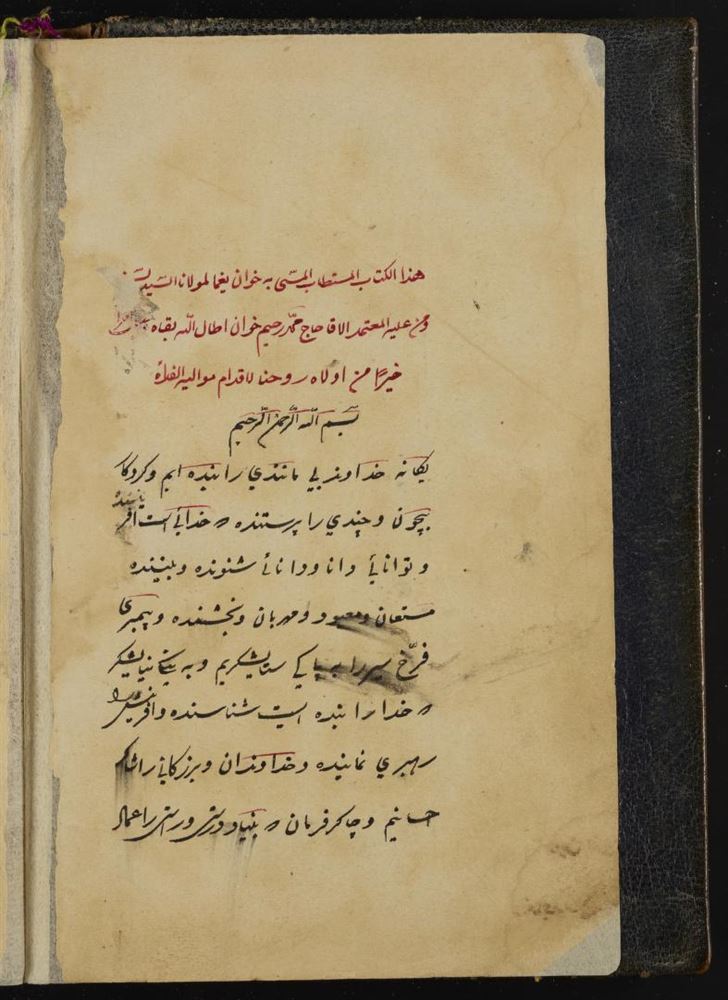 هذا الکتاب المستطاب المسمّی به خوان یغما لمولانا السّید
ومن علیه المعتمد الاقا حاج محمّد رحیم خوان اطال اللّه بقاه
خیرًا من اولاه روحنا لاقدام موالیه الفداء
بسم اللّه الرّحمن الرّحیم
یکانه خداوند بی مانندی را بنده ایم وکردکا
بیچون وچندی را پرستنده که خدائی است آفر
یننده
وتوانائی دانا ودانائی شنونده وبیننده
مستعان ومعبود ومهربان وبخشنده وپیمبری
فرّخ سیر را به پاکی ستایشکریم وبه نیکی نیایشکر
که خدا را بنده ایست شناسنده وآفرینش را
رهبری نماینده وخداوندان وبزرکانی را
سانیم وچاکر فرمان که بنیاد درستی وراستی را عماد